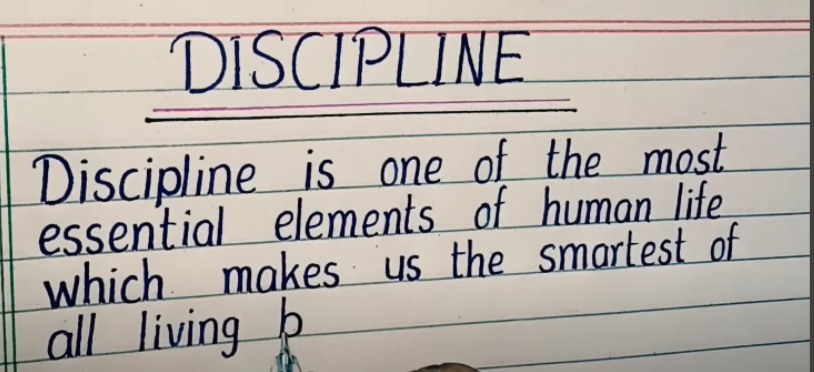 DISCIPLINE
Discipline is one of the most
essential elements of human life
which makes us the smartest of
all living b